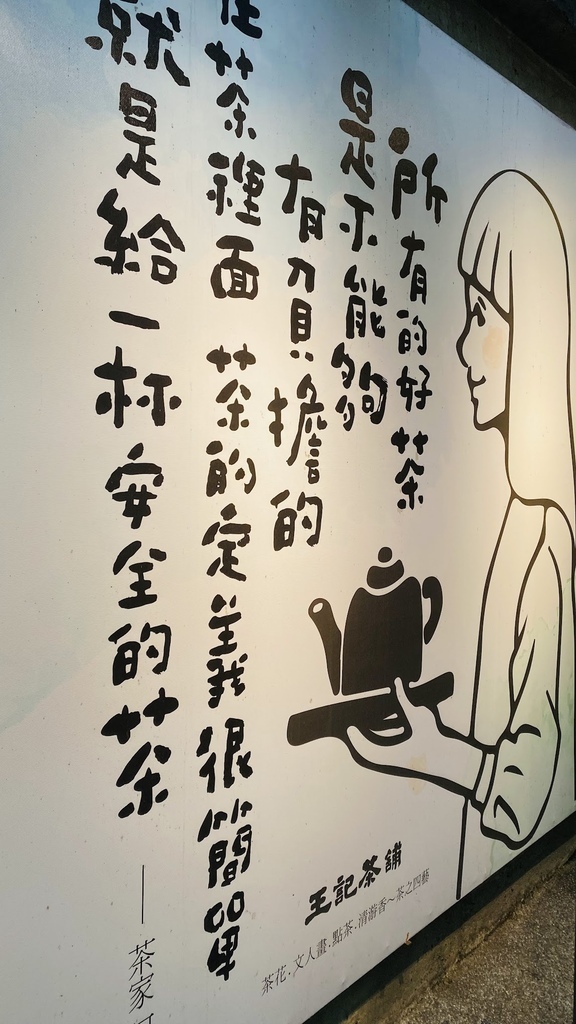 所有的好茶
是不能夠
有負擔的
在茶裡面 茶的定義很簡單
就是給一杯安全的茶
——茶家
王記茶舖
茶花.文人畫.點茶.清游香~茶之四藝